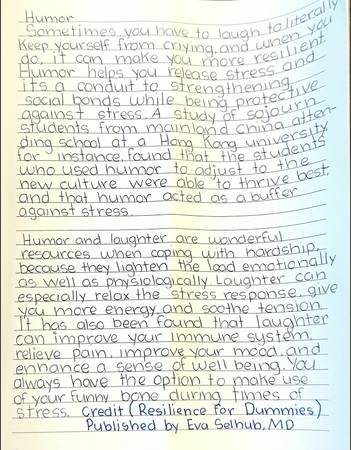 Humor
Sometimes, you have to laugh to literally
Keep yourself from criying, and when you
do, it can make you more resilient
Humor helps you release stress and
its a conduit to strengthening
social bonds while being protective
against stress. A study of sojourn
students from mainland China atten-
ding school at a Hong Kong university
for instance, found that the students
who used humor to adjust to the
new culture were able to thrive best,
and that humor acted as a buffer
against stress.
Humor and laughter are wonderful
resources when coping with hardship,
because they lighten the load emotionally
as well as physiologically. Laughter can
especially relax the stress response, give
you more energy and soothe tension.
It has also been found that laughter
can improve your immune system,
relieve pain, improve your mood, and
enhance a sense of well being. You
always have the option to make use
of your funny bone during times of
stress. Credit (Resilience for Dummies)
Published by Eva Selhub, MD